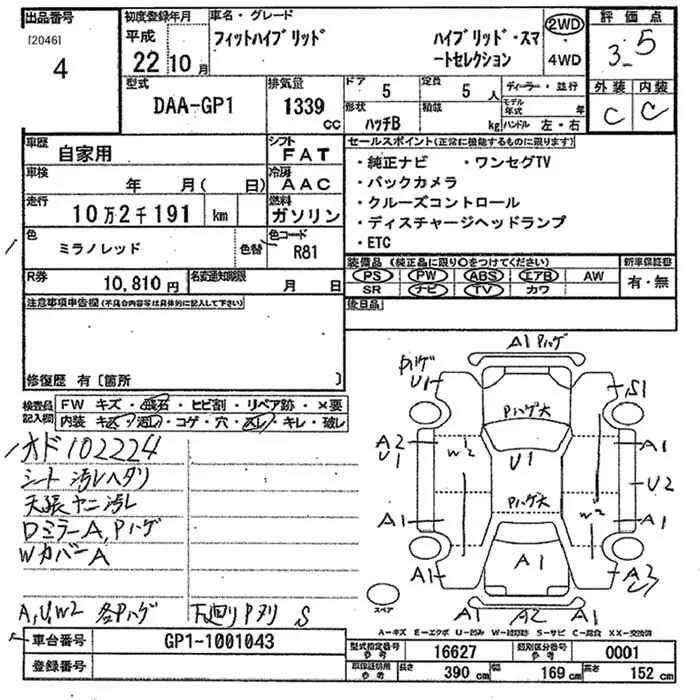 出品番号
[2046]
4
初度登録年月
平成
22 10月
車名・グレード
フィットハイブリッド
ハイブリッド・スマートセレクション
2WD
・
4WD
評価点
3.5
外装 内装
C C
型式
DAA-GP1
排気量
1339 cc
ドア
5
定員
5 人
形状
ハッチB
積載
kg
ディーラー・並行
モデル年式 年
ハンドル 左・右
車歴
自家用
シフト
FAT
車検
年 月( 日)
冷房
AAC
走行
10万2千191 km
燃料
ガソリン
色
ミラノレッド
色替
色コード
R81
R券
10,810円
名変通知期限
月 日
セールスポイント(正常に機能するものに限ります)
・純正ナビ ・ワンセグTV
・バックカメラ
・クルーズコントロール
・ディスチャージヘッドランプ
・ETC
装備品(純正品に限り○をつけてください)
PS PW ABS エアB AW
SR ナビ TV カワ
新車保証書
有・無
後日品
注意事項申告欄(不具合内容等は具体的に記入して下さい)
修復歴 有〔箇所 〕
検査員記入欄
FW キズ・飛石・ヒビ割・リペア跡・×要
内装 キズ・汚レ・コゲ・穴・スレ・キレ・破レ
メド102224
シート 汚レヘタリ
天張ヤニ汚レ
DミラーA,Pハゲ
WカバーA
A,U,W2 各Pハゲ 下廻りPヌリ S
A1 Pハゲ
Pハゲ
U1
S1
Pハゲ大
A2
U1
W2
U1
A1
U2
Pハゲ大
W2
A1
A1
A1
A1
A3
U2
A1
A2
A1
スペア
A-キズ E-エクボ U-凹み W-補修跡 S-サビ C-腐食 XX-交換済
車台番号
GP1-1001043
登録番号
型式指定番号
参考
16627
類別区分番号
参考
0001
長さ
390 cm
幅
169 cm
高さ
152 cm